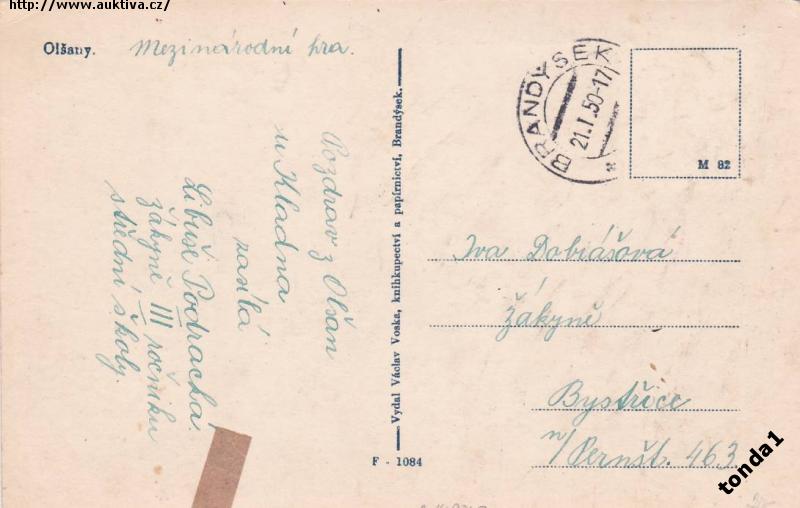 http://www.auktiva.cz/
Olšany. Mezinárodní hra.
Pozdrav z Olšan
u Kladna
zasílá
Libuše Podrachá
žákyně III ročníku
střední školy.
Vydal Václav Voska, knihkupectví a papírnictví, Brandýsek.
F - 1084
BRANDÝSEK
21.I.50-17
*
M 82
Iva Dobiášová
žákyně
Bystřice
n/Pernšt. 463.
tonda1